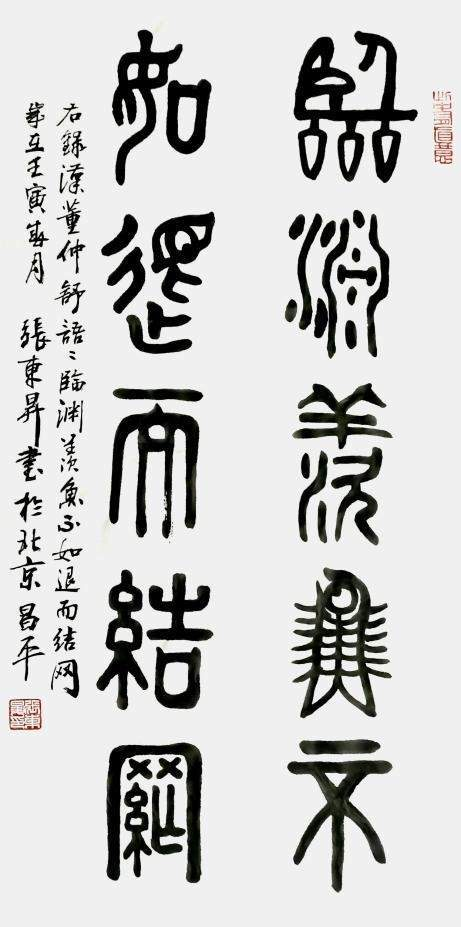 臨淵羨魚不
如退而結網
右錄漢董仲舒語〻臨渊羨魚不如退而结网
歲在壬寅年月 張東昇書於北京昌平